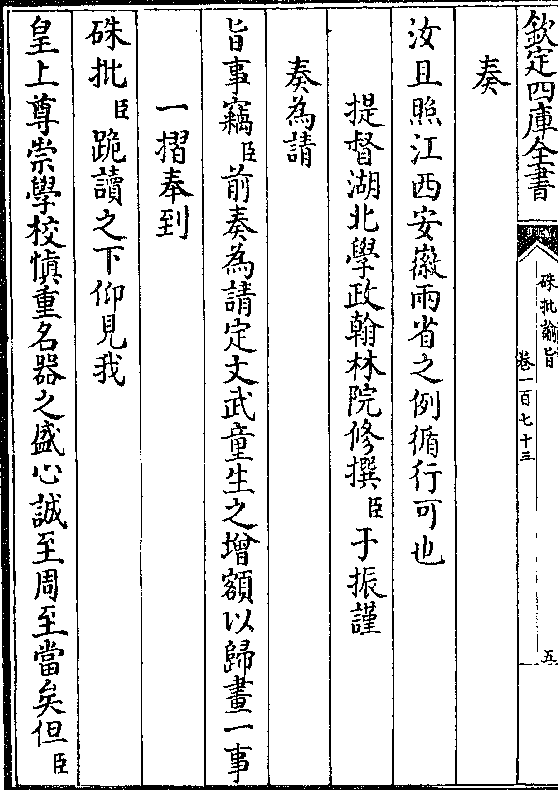 欽定四庫全書
硃批諭旨
卷一百七十三
五
奏
汝且照江西安徽兩省之例循行可也
提督湖北學政翰林院修撰臣于振謹
奏為請
旨事竊臣前奏為請定文武童生之增額以歸畫一事
一摺奉到
硃批臣跪讀之下仰見我
皇上尊崇學校慎重名器之盛心誠至周至當矣但臣